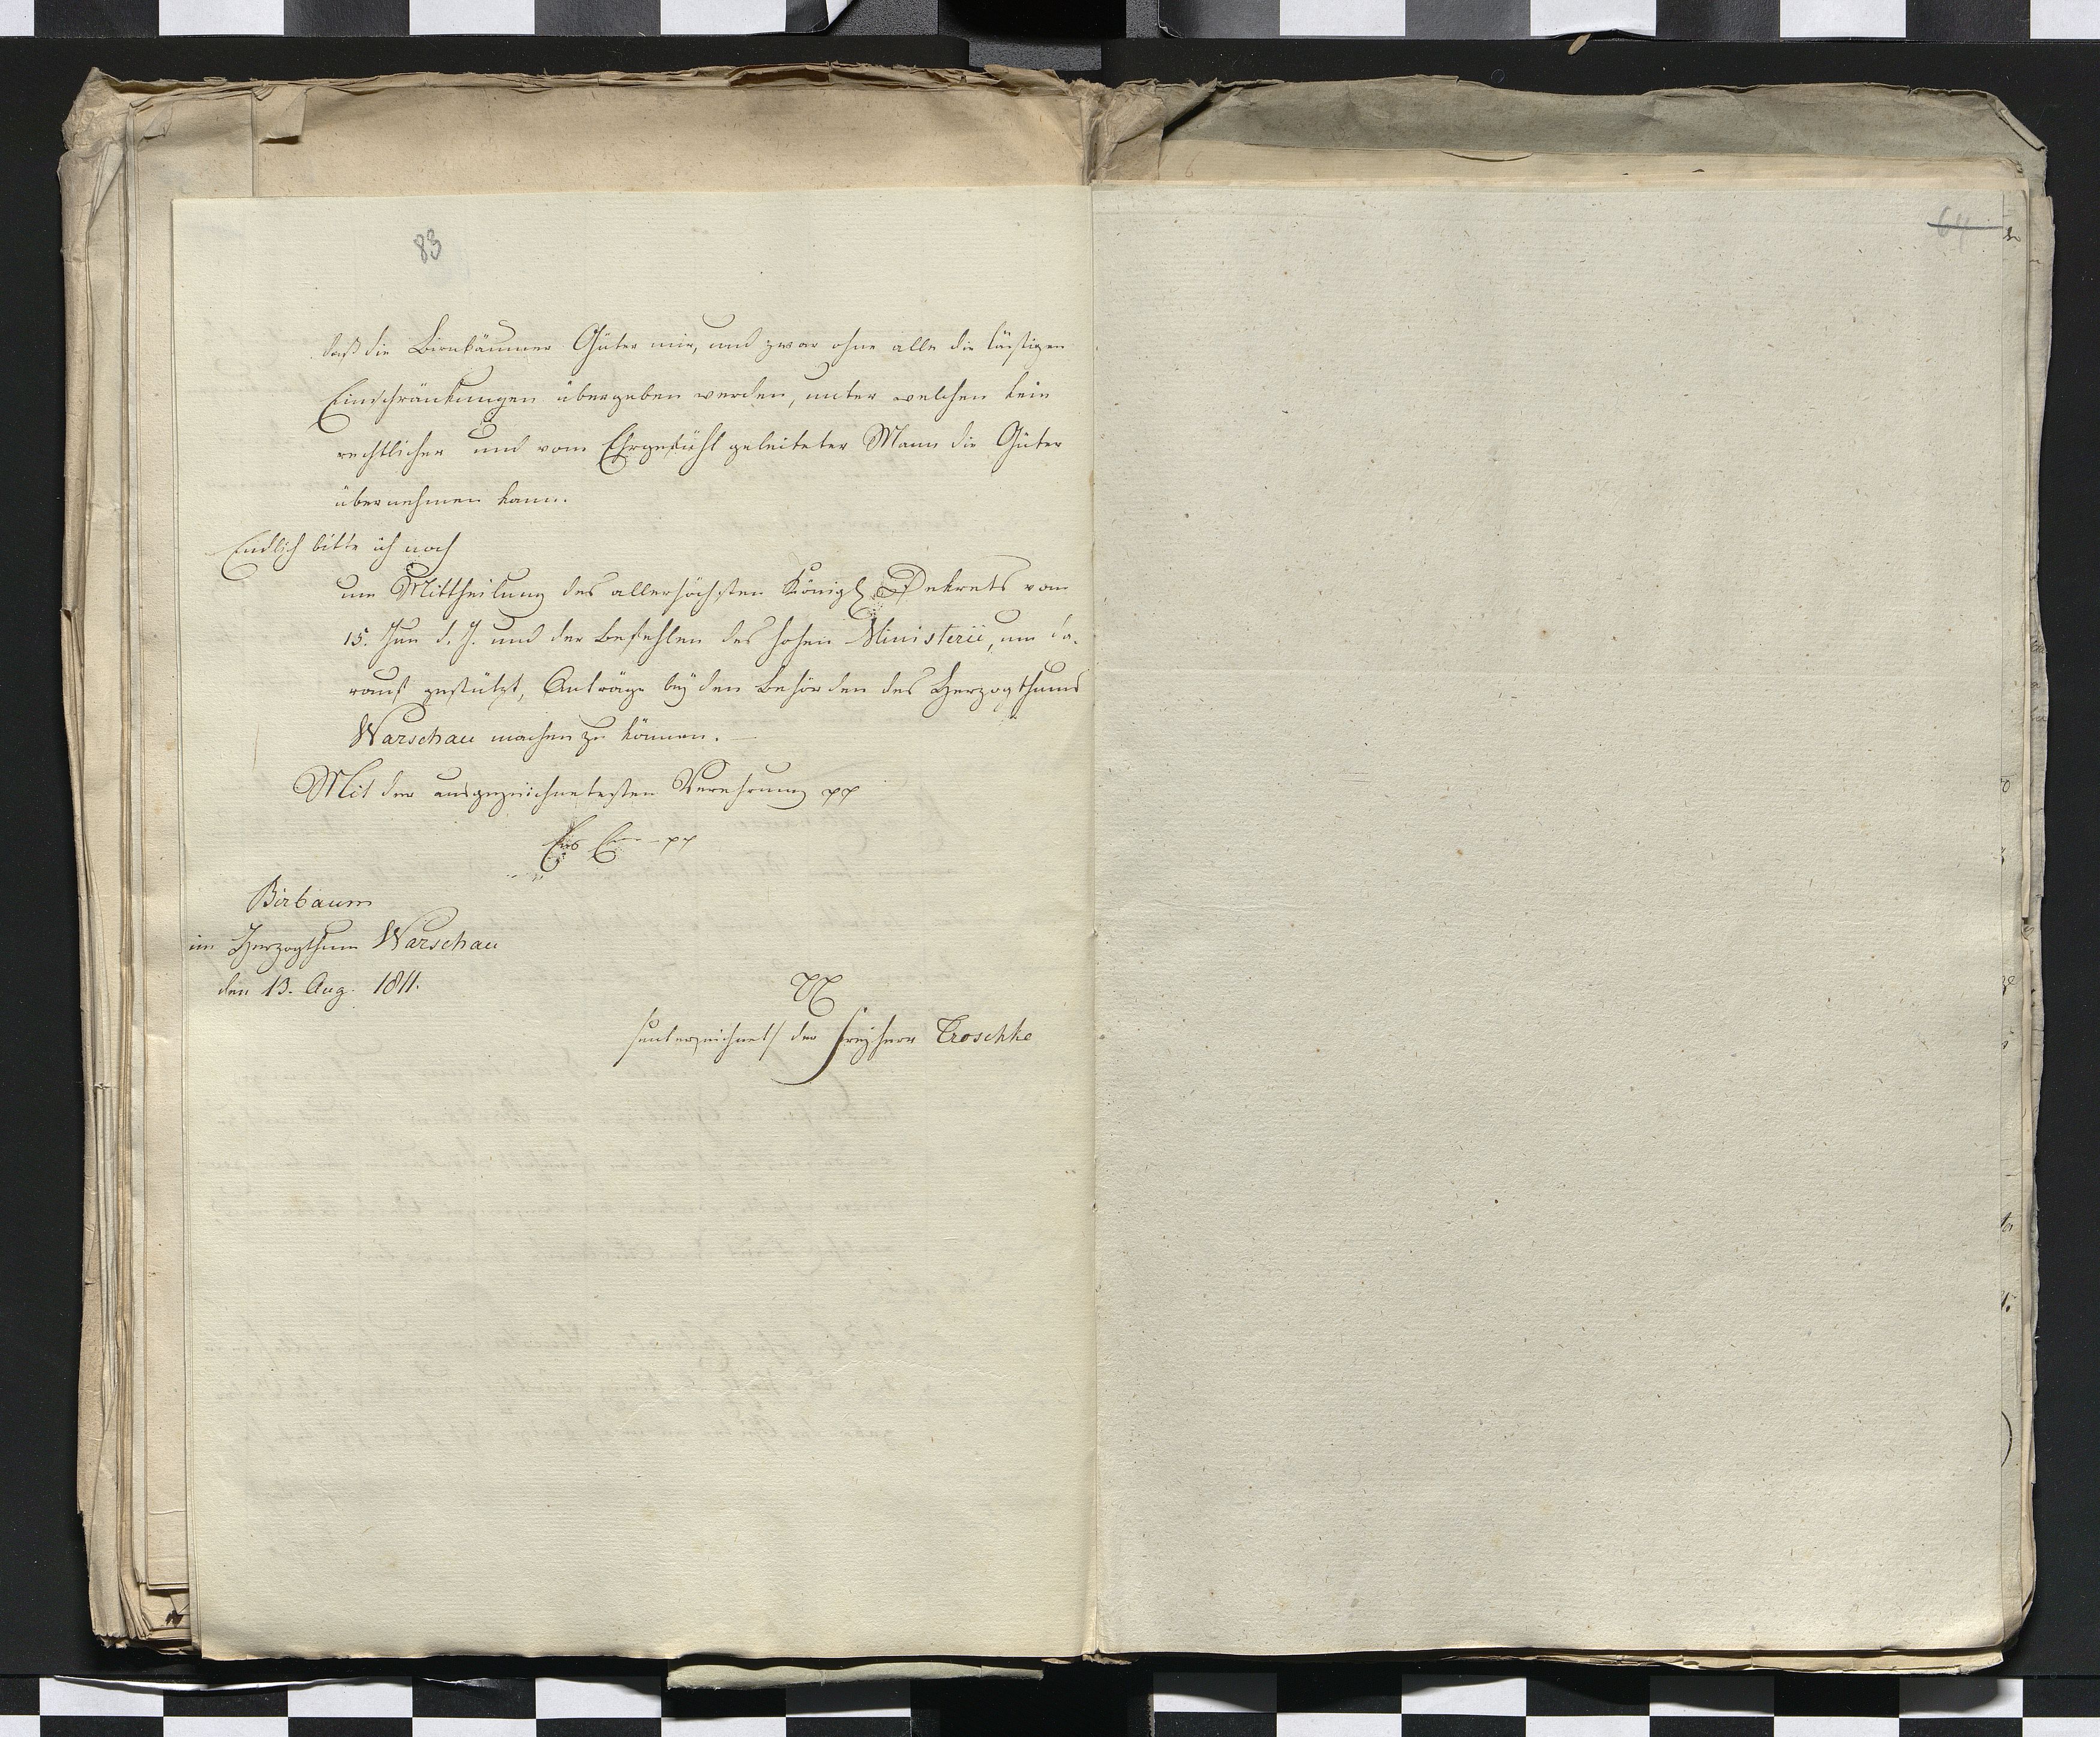 83
daß die Birnbäumer Güter mir, und zwar ohne alle die lästigen
Einschränkungen übergeben werden, unter welchen kein
rechtlicher und vom Ehrgefühl geleiteter Mann die Güter
übernehmen kann.
Endlich bitte ich noch
um Mittheilung des allerhöchsten Königl Dekrets vom
15. Jun d. J. und der Befehlen des hohen Ministerii, um da-
rauf gestützt, Anträge bey den Behörden des Herzogthums
Warschau machen zu können. —
Mit der ausgezeichnetesten Verehrung pp
Ew. E— pp
Birbaum
im Herzogthum Warschau
den 13. Aug. 1811.
/unterzeichnet/ der Freyherr Troschke
64